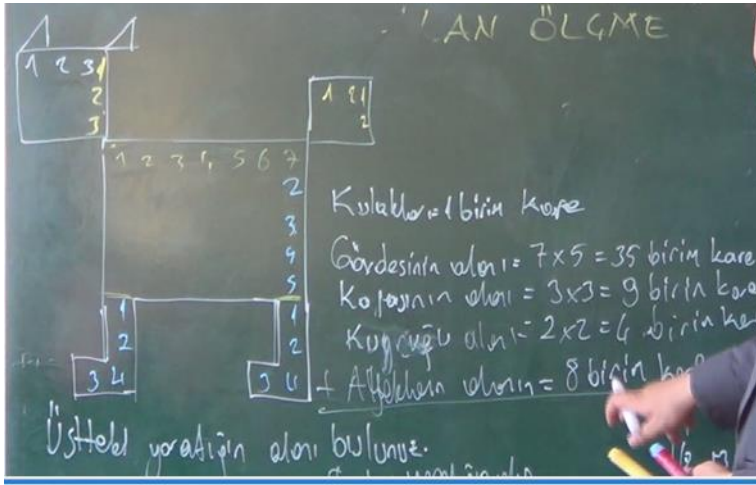 ALAN ÖLÇME
1 2 3 1
2
3
1 2 1
2
1 2 3 4 5 6 7
2
3
4
5
1 1
2 2
3 4 3 4
Kulaklar = 1 birim kare
Gövdesinin alanı = 7x5 = 35 birim kare
Kafasının alanı = 3x3 = 9 birim kare
Kuyruğu alanı = 2x2 = 4 birim ka
+ Ayakların alanın = 8 birim
Üstteki yaratığın alanı bulunuz.